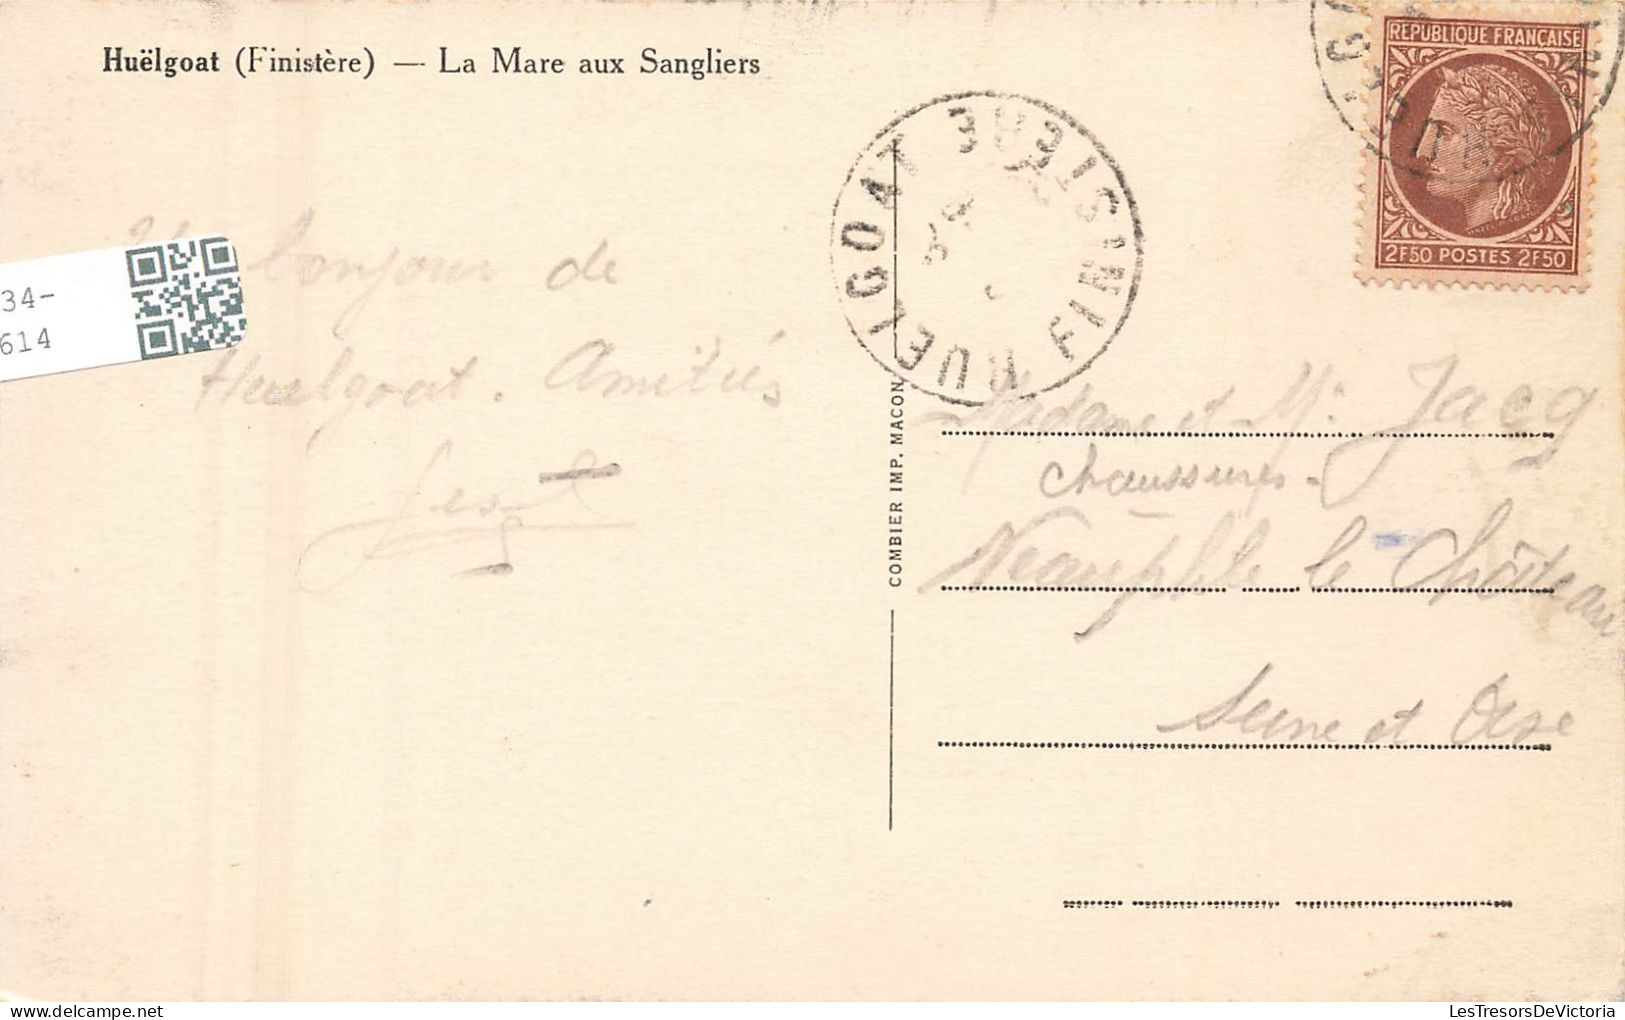 Huëlgoat (Finistère) — La Mare aux Sangliers
RÉPUBLIQUE FRANÇAISE
2F50 POSTES 2F50
HUELGOAT FINISTERE
34-
614
bonjour de
Huelgoat. Amitiés
COMBIER IMP. MACON
Madame et Mr Jacq
chaussures-
Neauphle le Château
Seine et Oise
LesTresorsDeVictoria